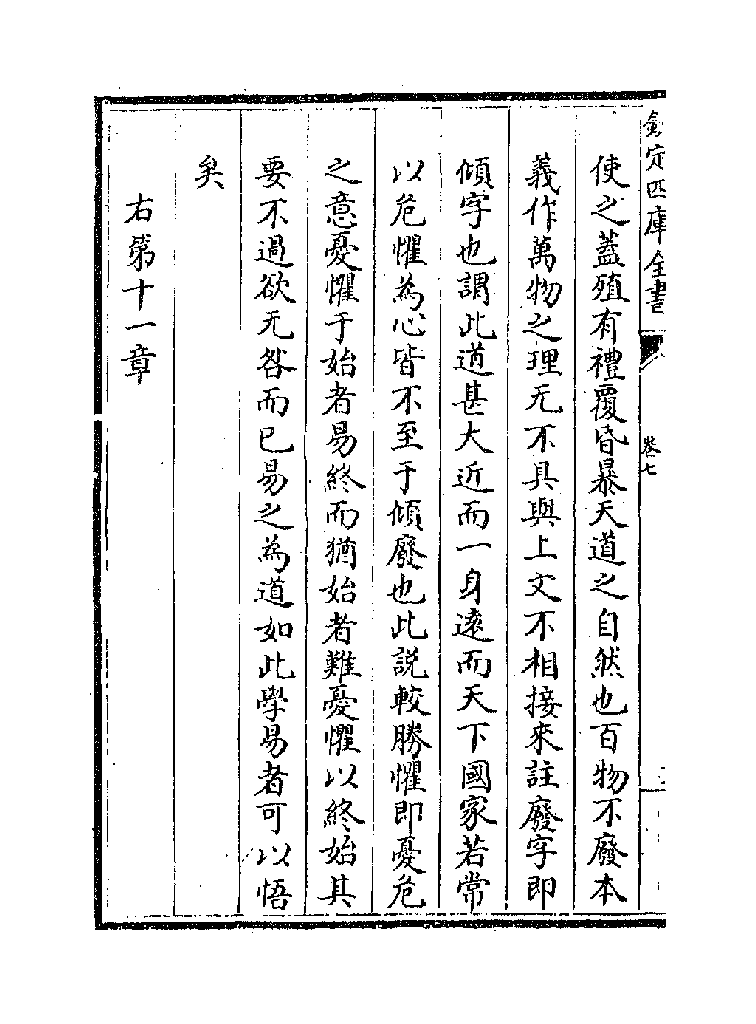 欽定四庫全書
卷七
使之蓋殖有禮覆昏暴天道之自然也百物不廢本
義作萬物之理无不具與上文不相接來註廢字即
傾字也謂此道甚大近而一身遠而天下國家若常
以危懼為心皆不至于傾廢也此説較勝懼即憂危
之意憂懼于始者易終而猶始者難憂懼以終始其
要不過欲无咎而已易之為道如此學易者可以悟
矣
右第十一章